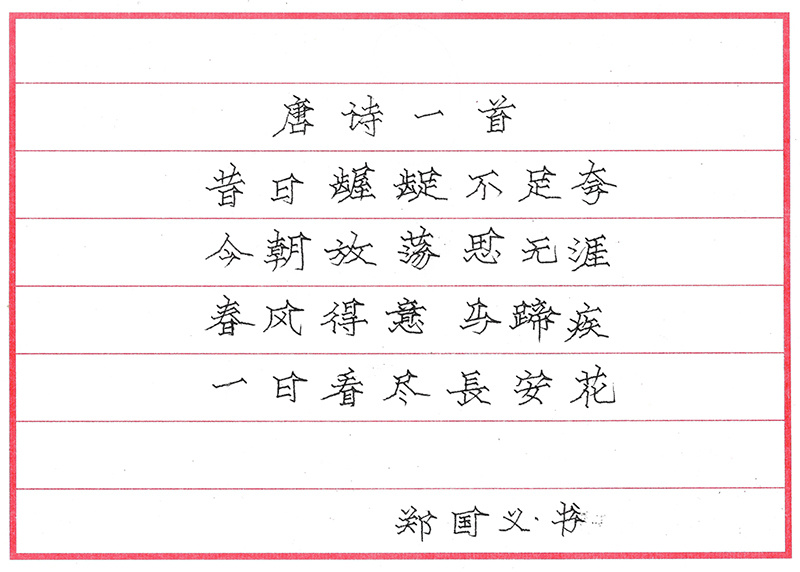 唐诗一首
昔日龌龊不足夸
今朝放荡思无涯
春风得意马蹄疾
一日看尽長安花
郑国义·书